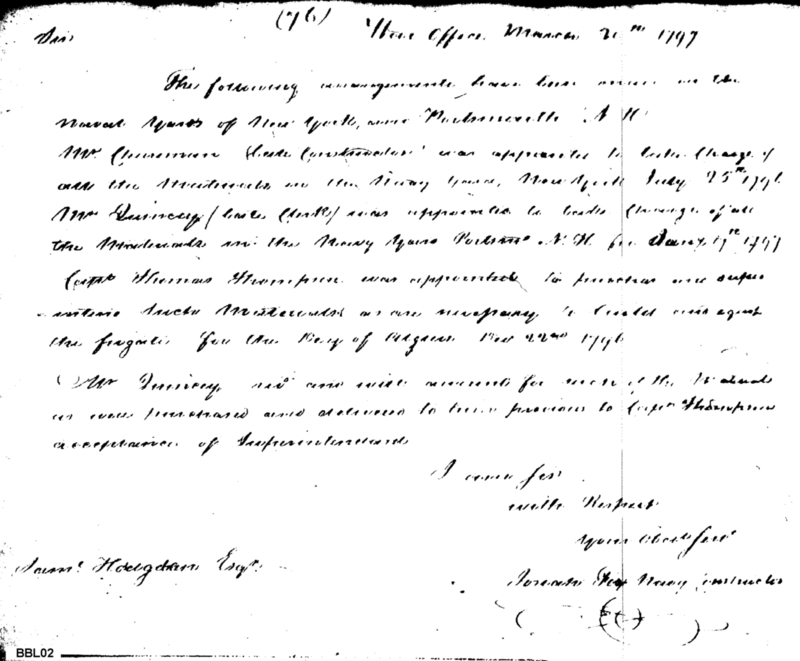 (76)
War Office March 20th 1797
Sir
The following arrangements have been made in the
Naval Yards of New York, and Portsmouth N H
Mr Cheesman (late Constructor) was appointed to take Charge of
all the Materials in the Navy Yard, New York July 25th 1796
Mr Quincey (late Clerk) was appointed to take Charge of all
the Materials in the Navy Yard Portsmo N. H. Jany 19th 1797
Capt Thomas Thompson was appointed to purchase and super
intend such Materials as are necessary to build and equipt
the frigate for the Dey of Algiers Nov 22nd 1796
Mr Quincey did and will account for such of the Materials
as were purchased and delivered to him previous to Capt Thompson
acceptance of Superintendant
I am Sir
with Respect
Your Obed Serv
Saml Hodgdon Esqr.
Josiah Fox Navy Constructor
BBL02